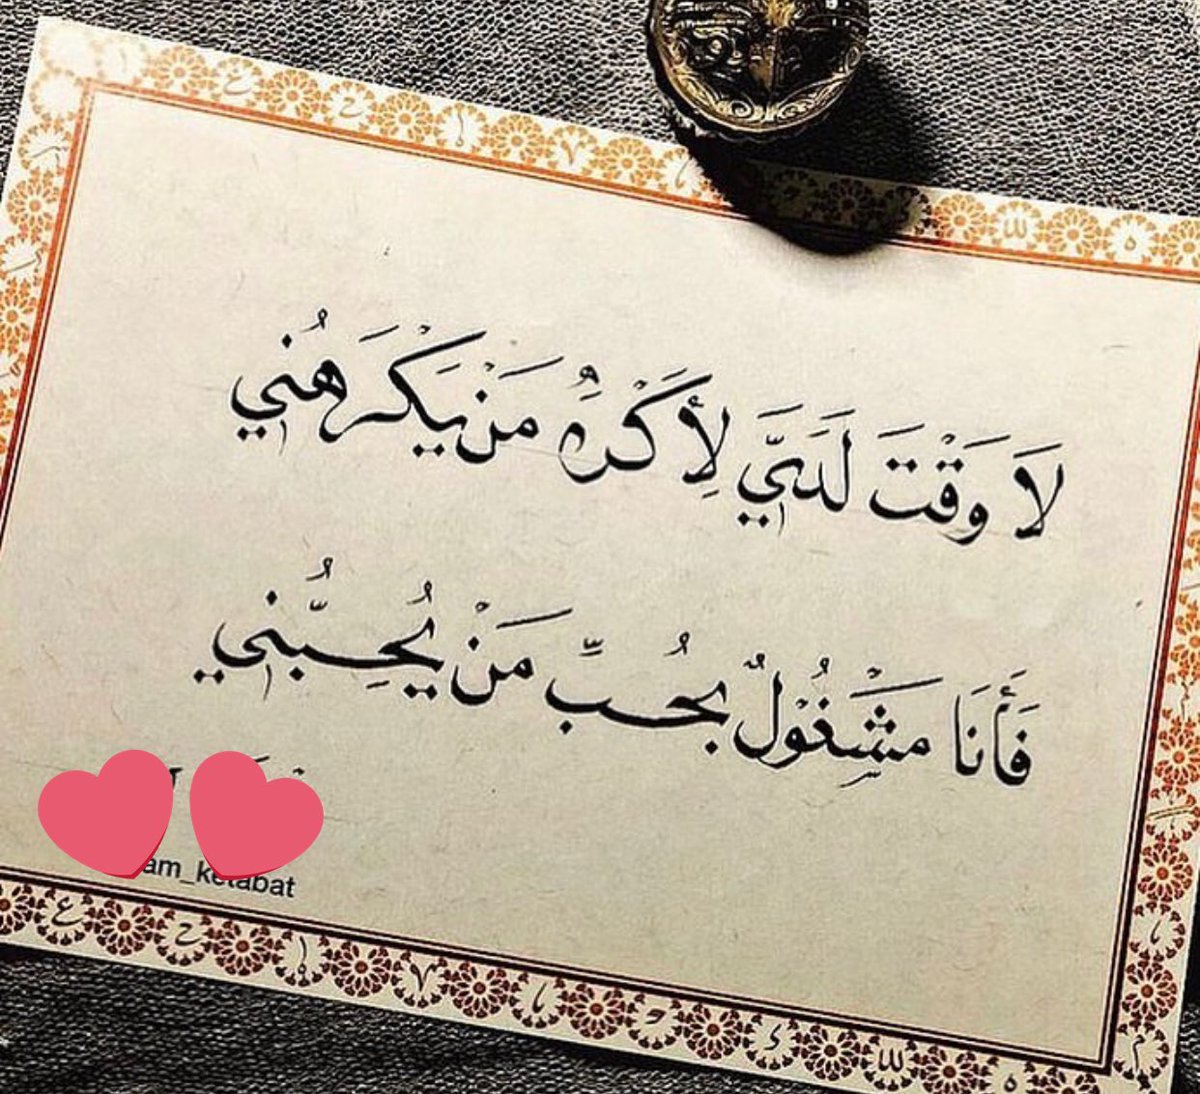 لَا وَقْتَ لَدَيَّ لِأَكْرَهُ مَنْ يَكْرَهُني
فَأَنَا مَشْغُوْلٌ بحُبِّ مَنْ يُحِبُّني
am_ketabat